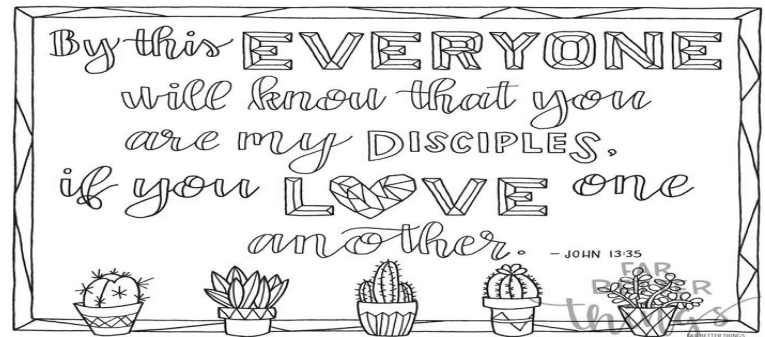 By this EVERYONE
will know that you
are my DISCIPLES,
if you LOVE one
another. - JOHN 13:35
FAR
BETTER
things
FAR BETTER THINGS